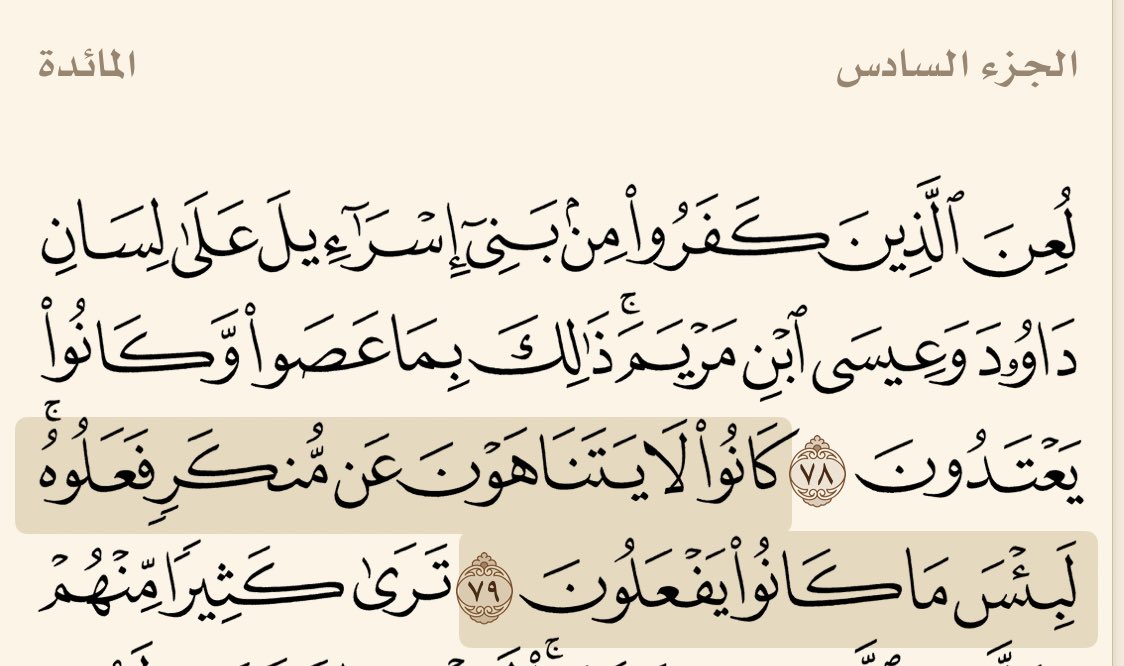 الجزء السادس
المائدة
لُعِنَ ٱلَّذِينَ كَفَرُوا۟ مِنۢ بَنِىٓ إِسْرَٰٓءِيلَ عَلَىٰ لِسَانِ
دَاوُۥدَ وَعِيسَى ٱبْنِ مَرْيَمَ ۚ ذَٰلِكَ بِمَا عَصَوا۟ وَّكَانُوا۟
يَعْتَدُونَ ٧٨ كَانُوا۟ لَا يَتَنَاهَوْنَ عَن مُّنكَرٍ فَعَلُوهُ ۚ
لَبِئْسَ مَا كَانُوا۟ يَفْعَلُونَ ٧٩ تَرَىٰ كَثِيرًا مِّنْهُمْ